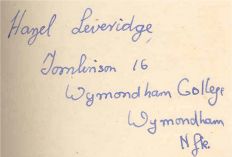 Hazel Leveridge,
Tomlinson 16
Wymondham College
Wymondham
Nfk.